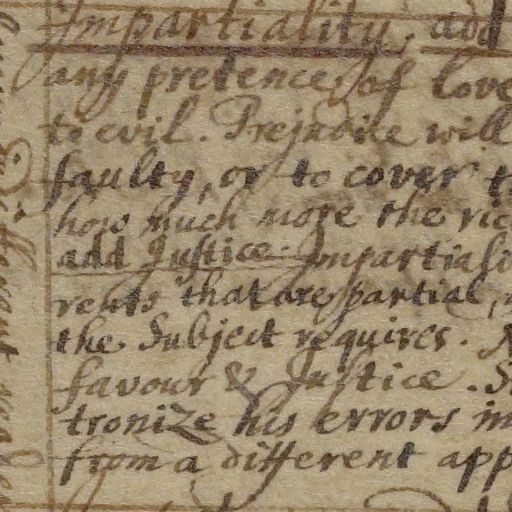 Impartiality. add
any pretences of love
to evil. Prejudice will
faulty, or to cover
how much more the
add Justice. Impartial
rents that are partial,
the Subject requires.
favour & Justice.
tronize his errors in
from a different app